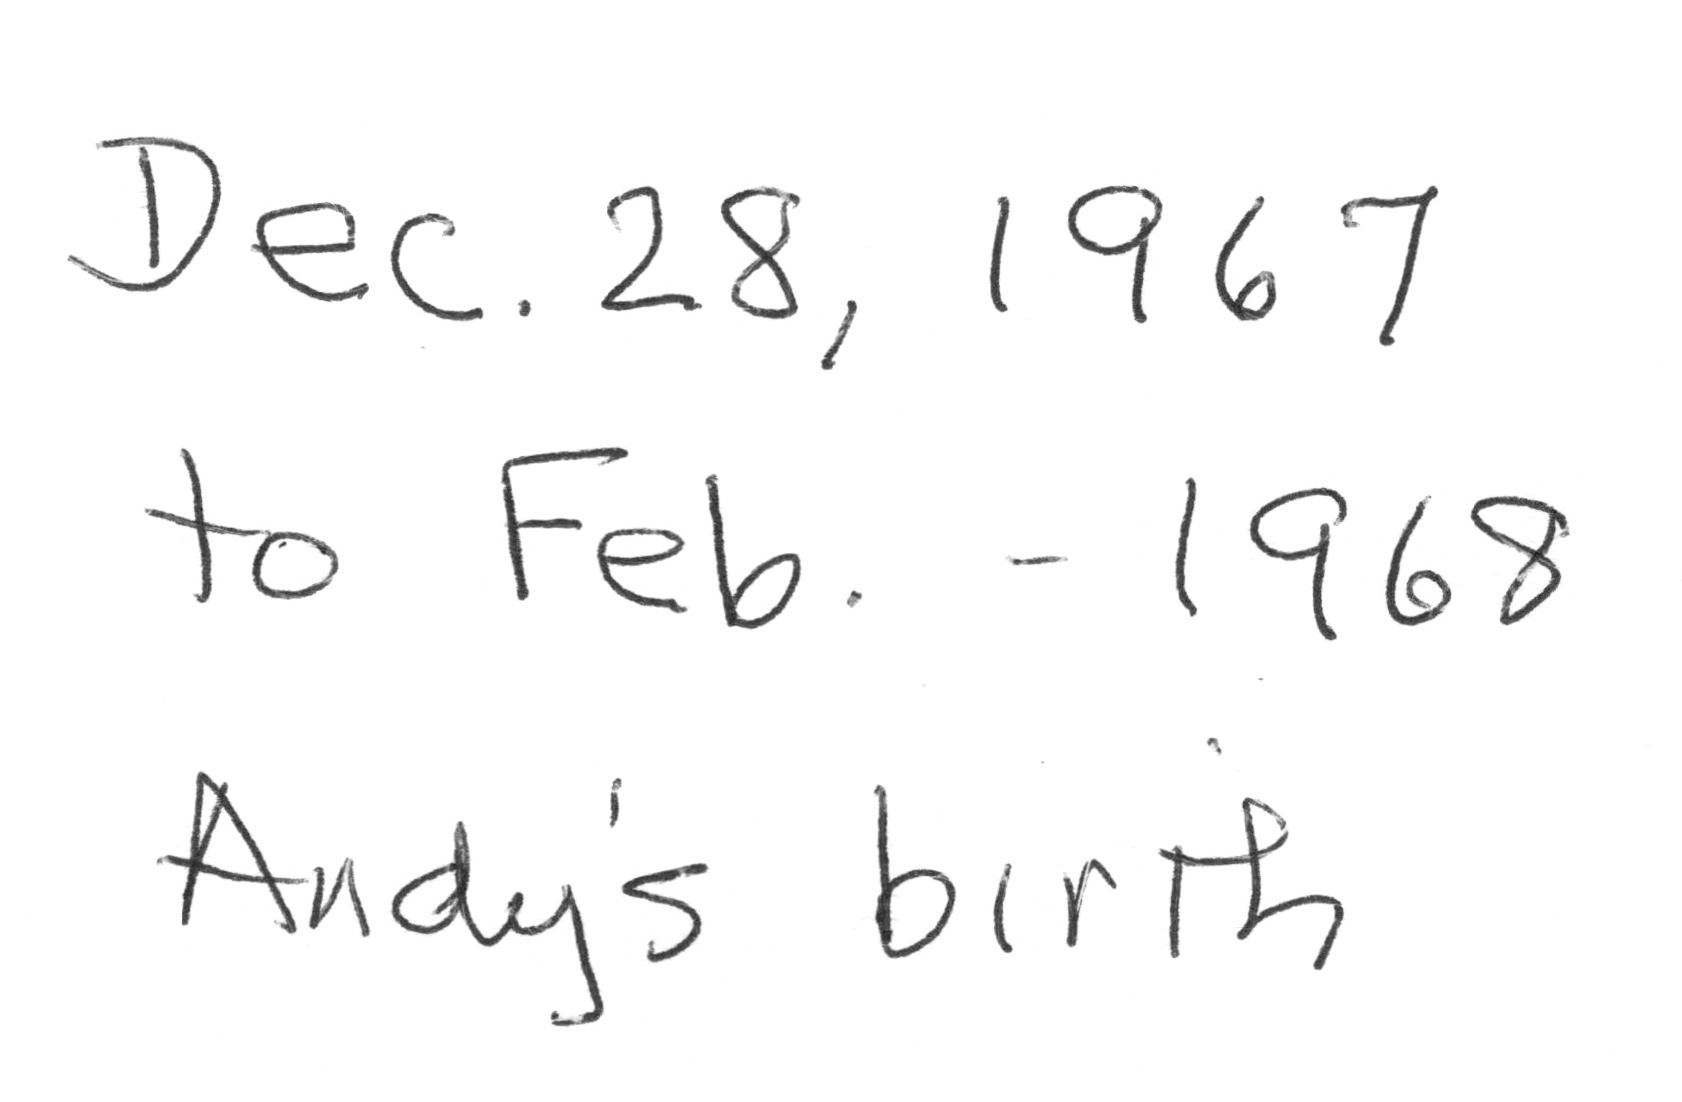 Dec. 28, 1967
to Feb. - 1968
Andy's birth